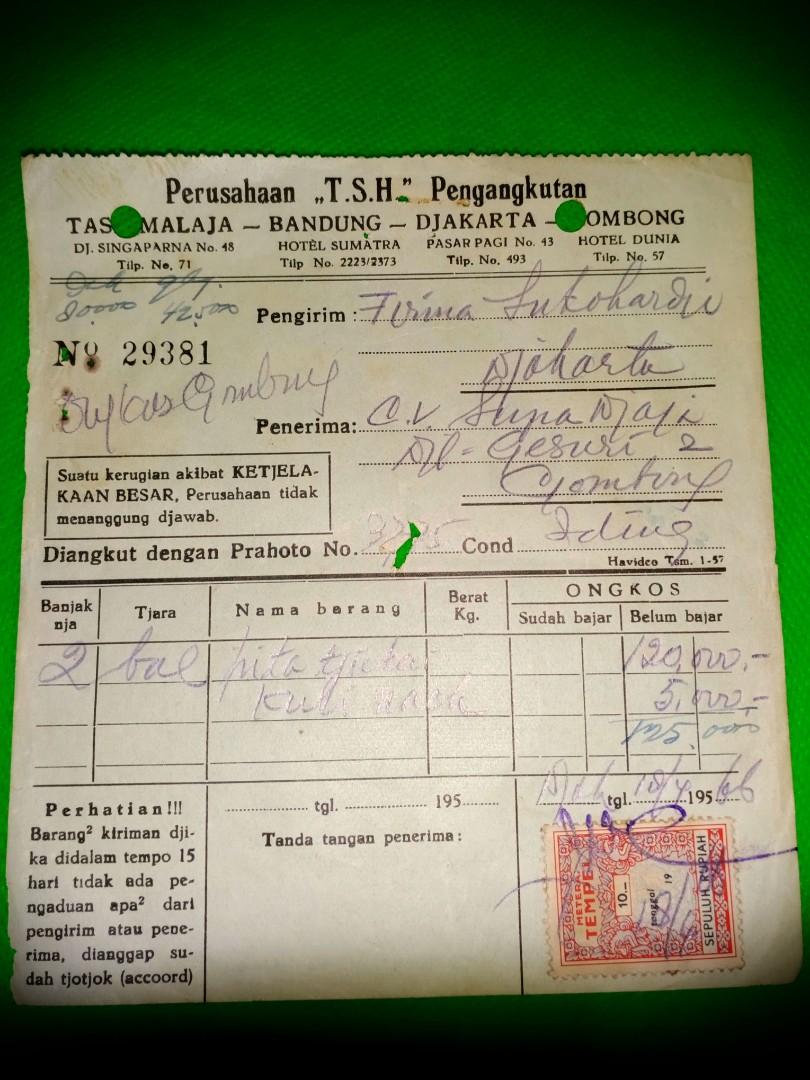 Perusahaan „T.S.H." Pengangkutan
TAS MALAJA — BANDUNG — DJAKARTA — OMBONG
DJ. SINGAPARNA No. 48 HOTEL SUMATRA PASAR PAGI No. 43 HOTEL DUNIA
Tilp. No. 71 Tilp No. 2223/2373 Tilp. No. 493 Tilp. No. 57
80.000 42.500
Pengirim : Firma Sukohardji
No 29381
Djakarta
Gombong
Penerima: C.V. Supa Djaja
Gesuri 2
Gombong
Suatu kerugian akibat KETJELA-
KAAN BESAR, Perusahaan tidak
menanggung djawab.
Diangkut dengan Prahoto No. Cond
Havideo Tsm. 1-57
Banjak nja Tjara Nama barang Berat Kg. ONGKOS
Sudah bajar Belum bajar
2 bal pita 120.000,-
Kuli 5.000,-
125.000
Perhatian!!!
Barang² kiriman dji-
ka didalam tempo 15
hari tidak ada pe-
ngaduan apa² dari
pengirim atau pene-
rima, dianggap su-
dah tjotjok (accoord)
tgl. 195
Tanda tangan penerima :
tgl. 195 66
METERAI
TEMPEL
10.—
tanggal 19
SEPULUH RUPIAH